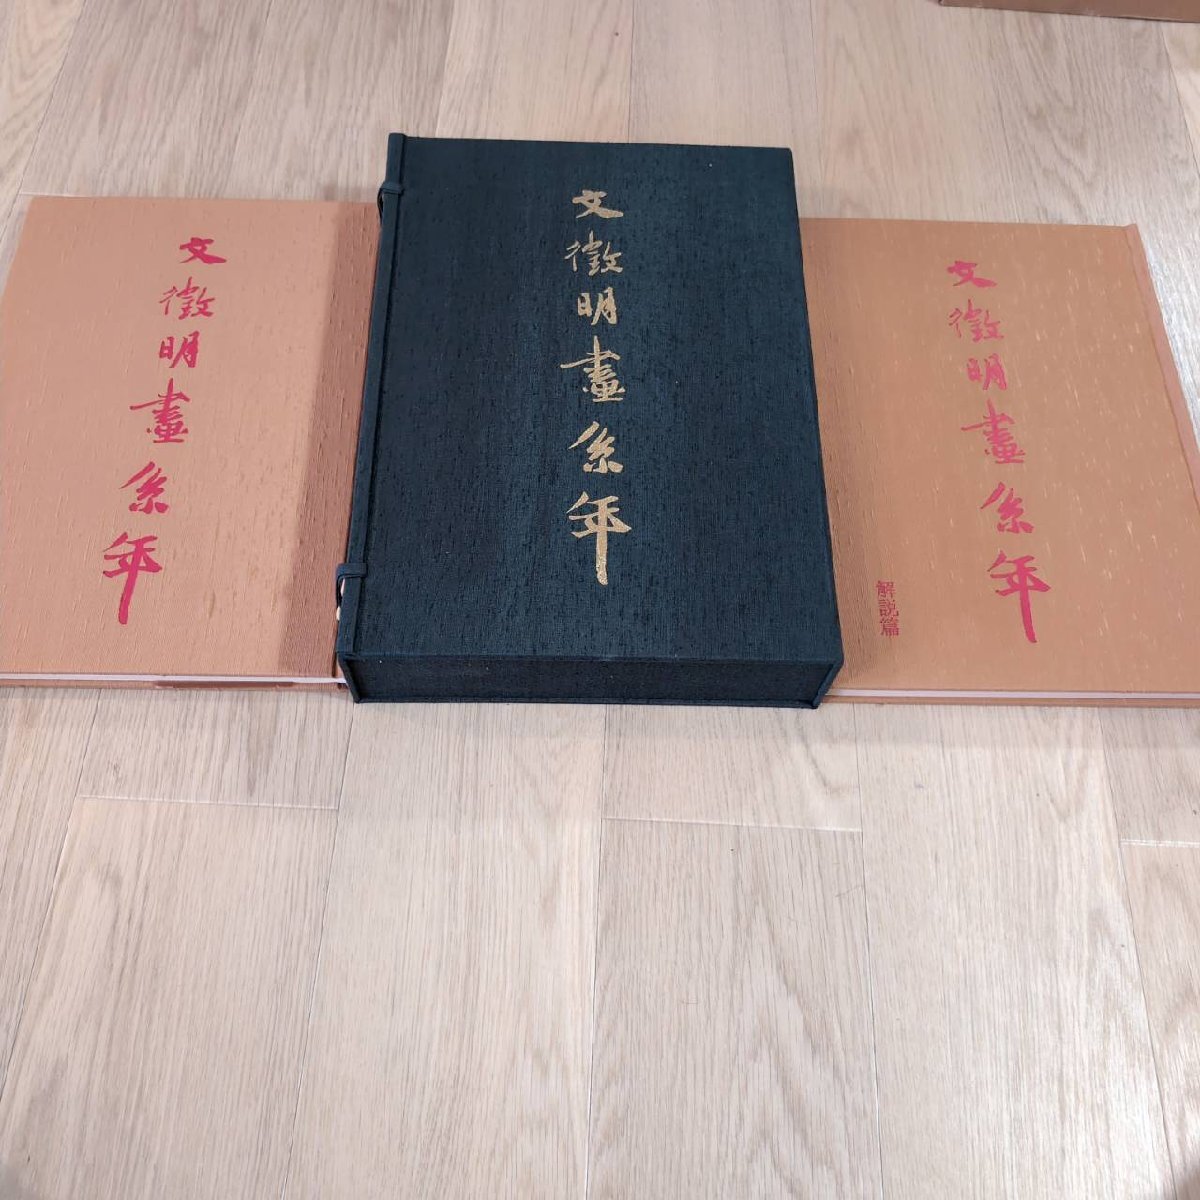 文徵明畫系年
文徵明畫系年
文徵明畫系年
解説篇